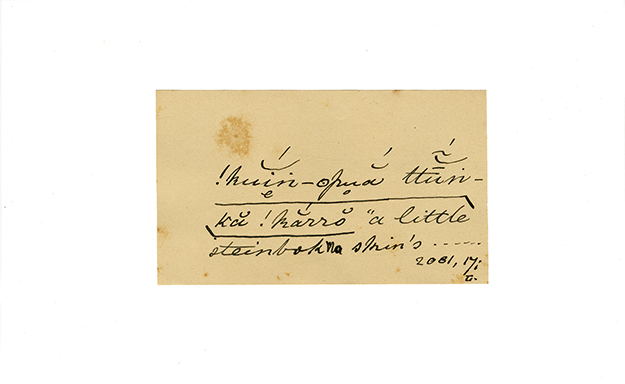 !kŭin-opuă ttŭ̃in-
kă !kărrŏ "a little
steinbok skin's ......
2081, 17;